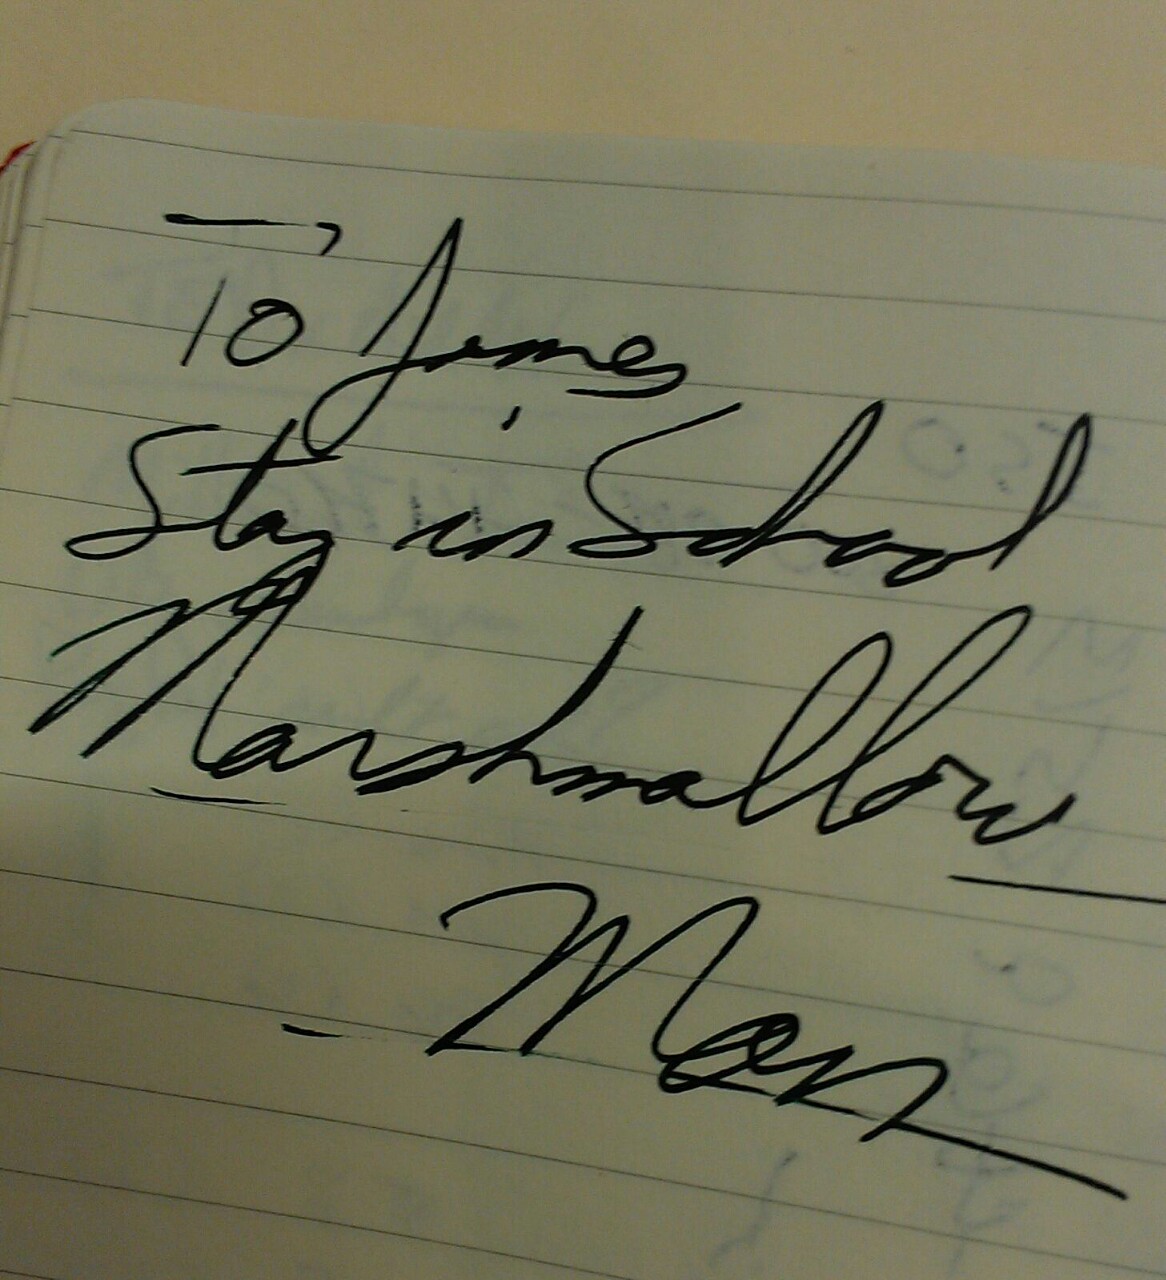 To James
Stay in School
Marshmallow
- Man